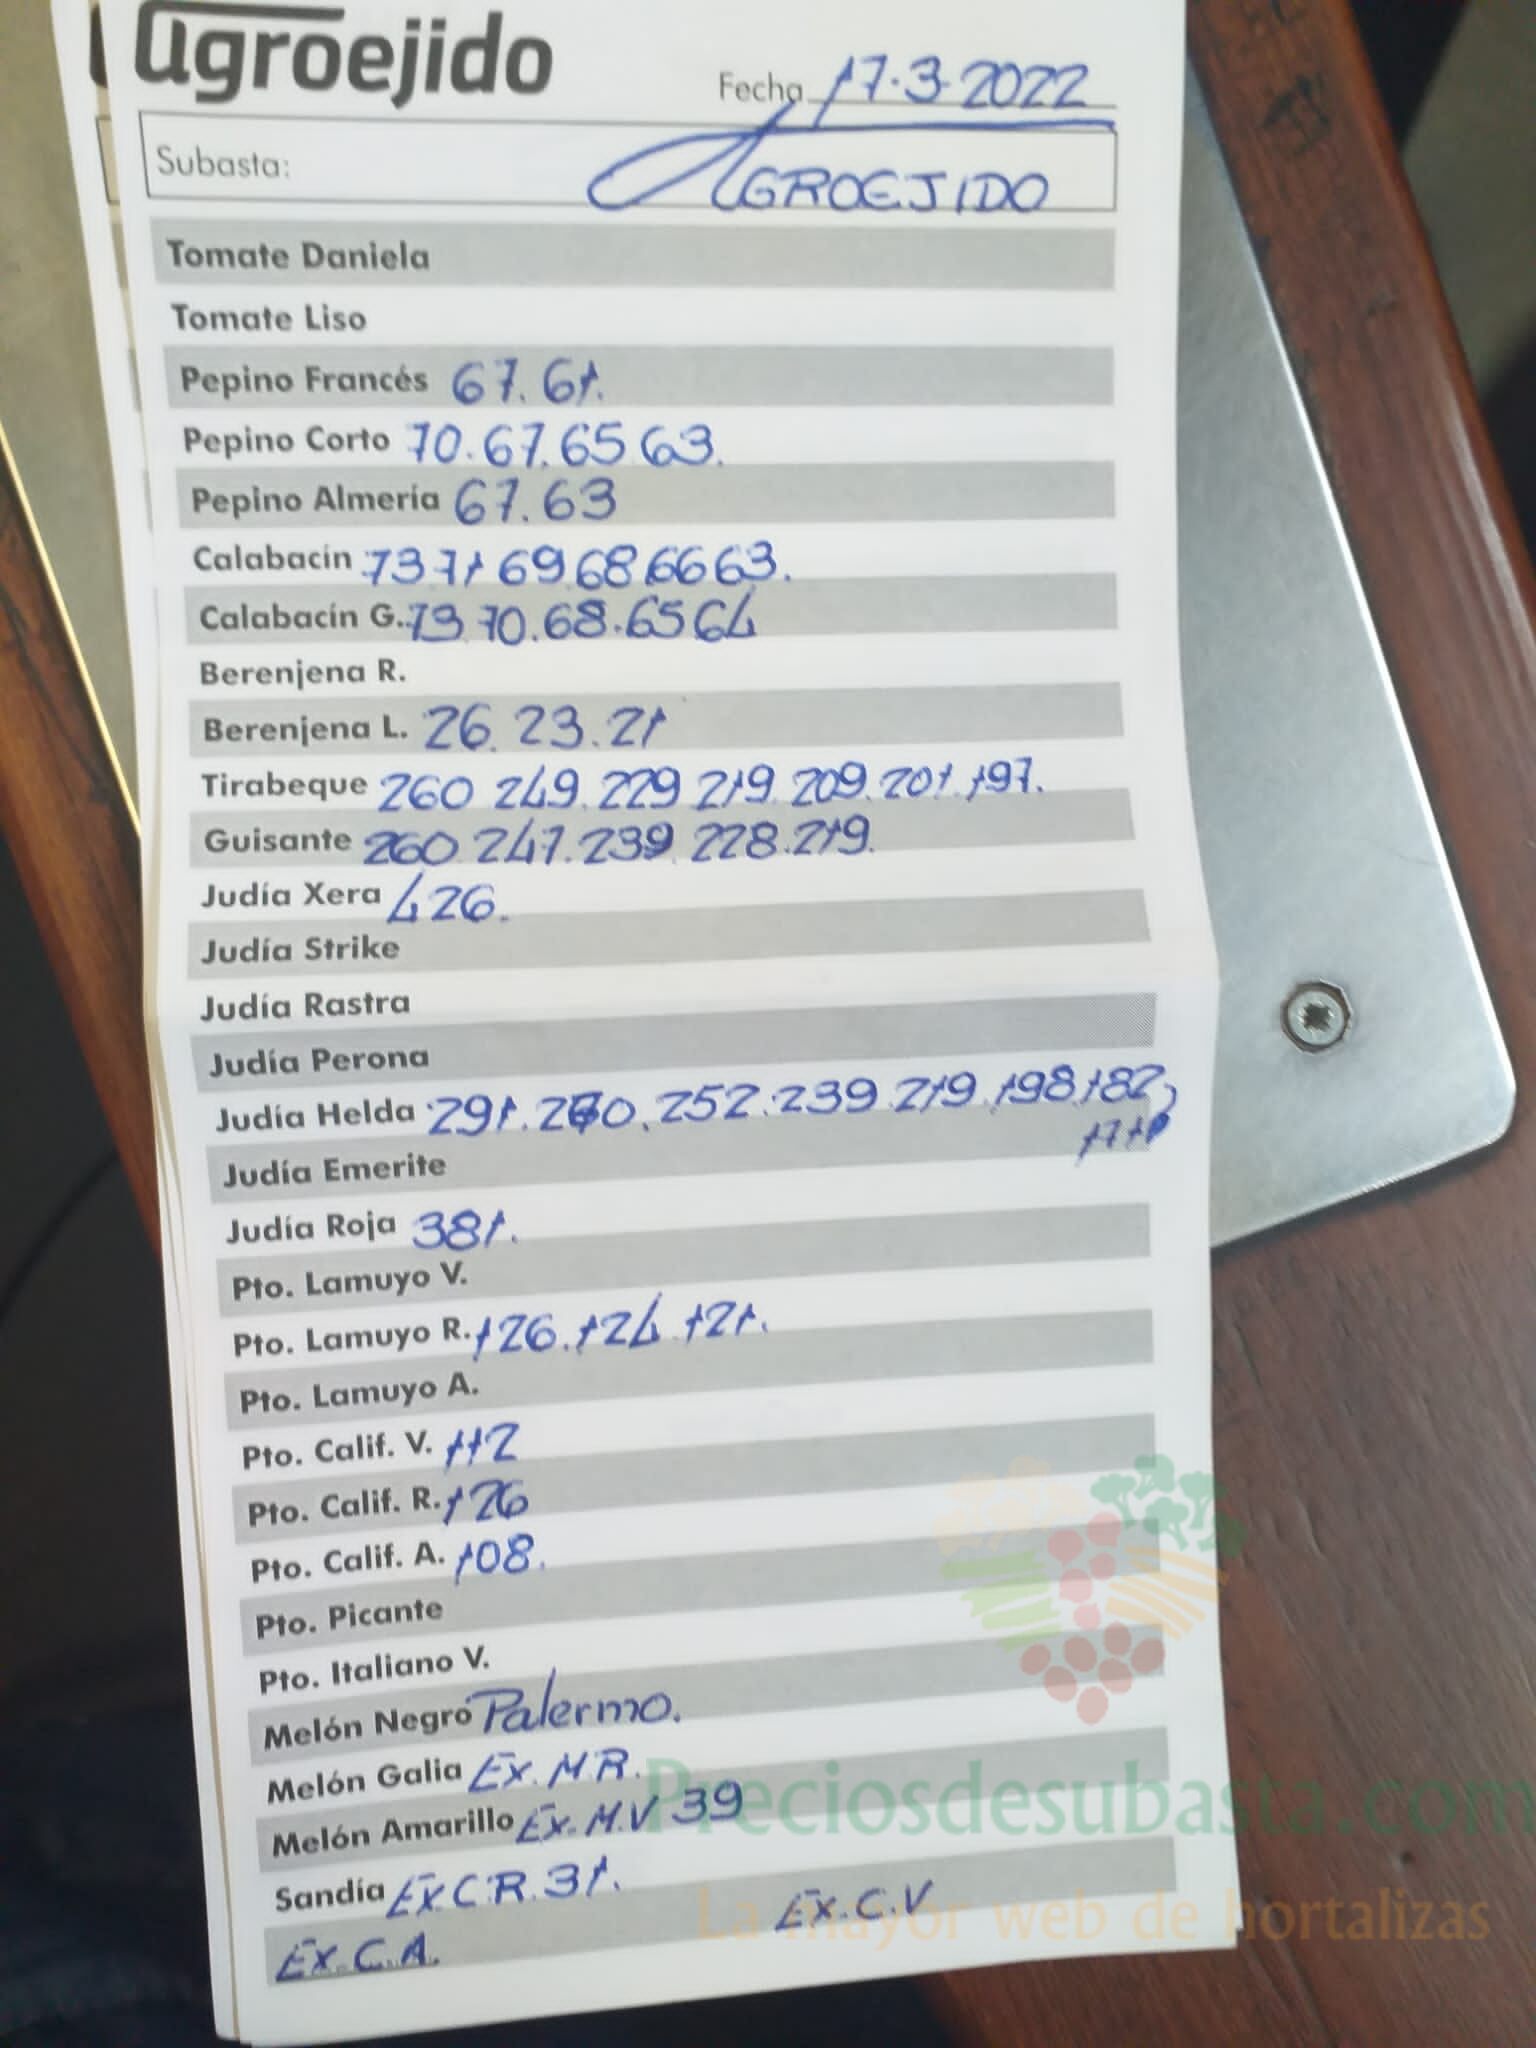 agroejido
Fecha 17.3.2022
Subasta: AGROEJIDO
Tomate Daniela
Tomate Liso
Pepino Francés 67. 61.
Pepino Corto 70. 67. 65 63.
Pepino Almería 67. 63
Calabacín 73 71 69 68 66 63.
Calabacín G. 73 70. 68. 65 64
Berenjena R.
Berenjena L. 26. 23. 21
Tirabeque 260 249. 229 219. 209. 201. 197.
Guisante 260 247. 239 228. 219.
Judía Xera 426.
Judía Strike
Judía Rastra
Judía Perona
Judía Helda 291. 260. 252. 239 219. 198 182,
Judía Emerite
Judía Roja 381.
Pto. Lamuyo V.
Pto. Lamuyo R. 126. 124 121.
Pto. Lamuyo A.
Pto. Calif. V. 112
Pto. Calif. R. 126
Pto. Calif. A. 108.
Pto. Picante
Pto. Italiano V.
Melón Negro Palermo.
Melón Galia Ex. M.R.
Melón Amarillo Ex. M.V 39
Preciosdesubasta.com
Sandía Ex C.R. 31.
Ex. C. V
La mayor web de hortalizas
Ex. C. A.